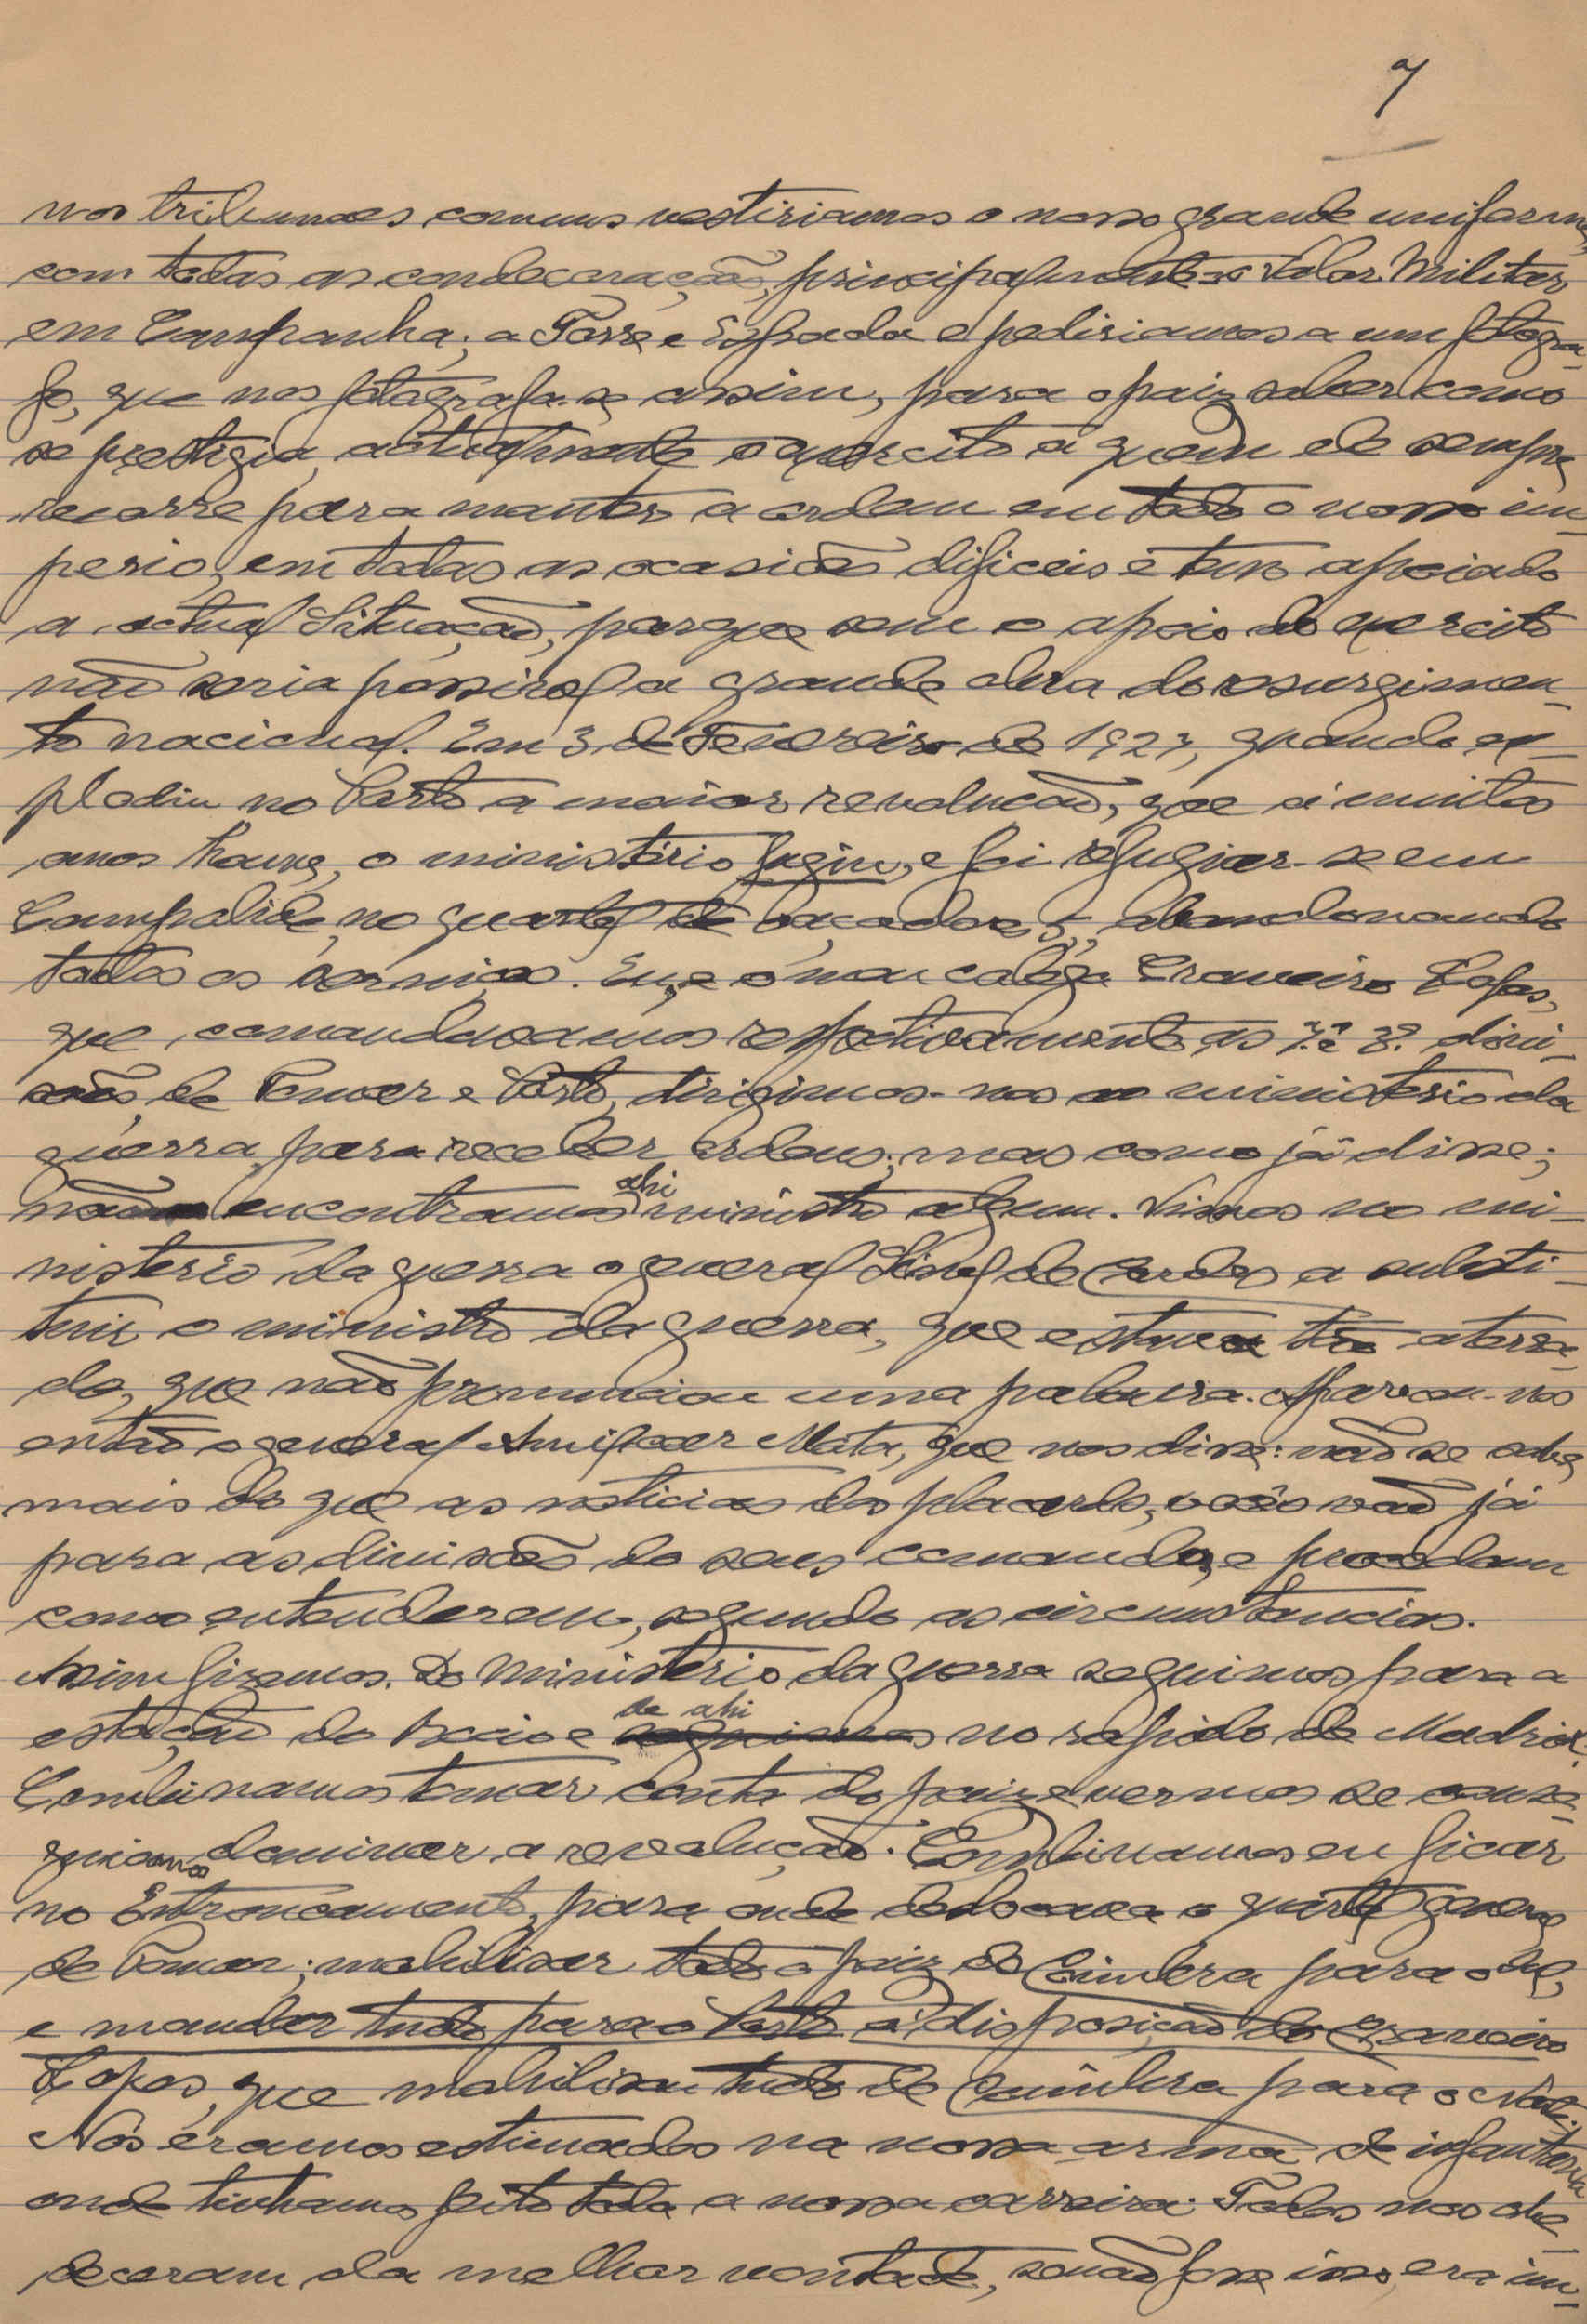 7
nos tribunaes comuns vestiriamos o nosso grande uniforme,
com todas as condecorações, principalmente o Valor Militar
em Campanha; a Torre e Espada e pediriamos a um fotogra-
fo, que nos fotografa-se assim, para o paiz saber como
se prestigia actualmente o exercito a quem ele sempre
recorre para manter a ordem em todo o nosso im-
perio, em todas as ocasiões dificeis e tem apoiado
a actual Situação, porque sem o apoio do exercito
não seria possivel a grande obra do resurgimen-
to nacional. Em 3 de Fevereiro de 1927, quando ex-
plodiu no Porto a maior revolução, que á muitos
anos houve, o ministério fugiu, e foi refugiar-se em
Campolide, no quartel de caçadores 5, abandonando
todos os serviços. Eu, e o meu colega Craveiro Lopes,
que comandavamos respectivamente as 7.ª e 3.ª divi-
sões, de Tomar e Porto, dirigimos-nos ao ministerio da
guerra para receber ordens; mas como já disse;
não encontramos ahi ministro algum. Vimos no mi-
nisterio da guerra o general Sinel de Cordes a substi-
tuir o ministro da guerra, que estava tão aterra-
do, que não pronunciou uma palavra. Apareceu-nos
então o general Amilcar Mota, que nos disse: não se sabe
mais do que as noticias dos placards, vocês vão já
para as divisões do seus comandos, e procedam
como entenderem, segundo as circunstancias.
Assim fizemos. Do Ministério da guerra seguimos para a
estação do Rocio e de ahi no rapido de Madrid.
Combinamos tomar conta do paiz e vermos se conse-
guiamos dominar a revolução. Combinamos eu ficar
no Entroncamento, para onde deslocava o quartel general
de Tomar; mobilisar todo o paiz de Coimbra para o sul,
e mandar tudo para o Porto á disposição do Craveiro
Lopes, que mobilisou tudo de Coimbra para o Norte.
Nós eramos estimados na nossa arma de infantaria
onde tinhamos feito toda a nossa carreira. Todos nos obe-
deceram da melhor vontade, senão fosse isso, era im-